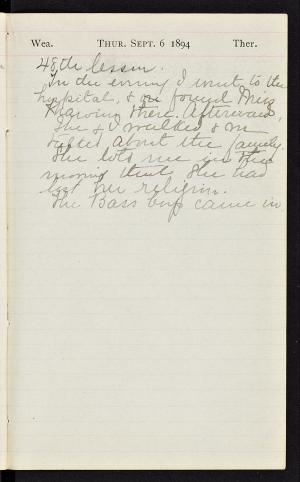 Wea. THUR. SEPT. 6 1894 Ther.
48th lesson.
In the evening I went to the
hospital, & found Miss
there. Afterward,
she & I walked & we
talked about the family.
She told me in the
morning that she had
lost her religion.
The Bass boys came in